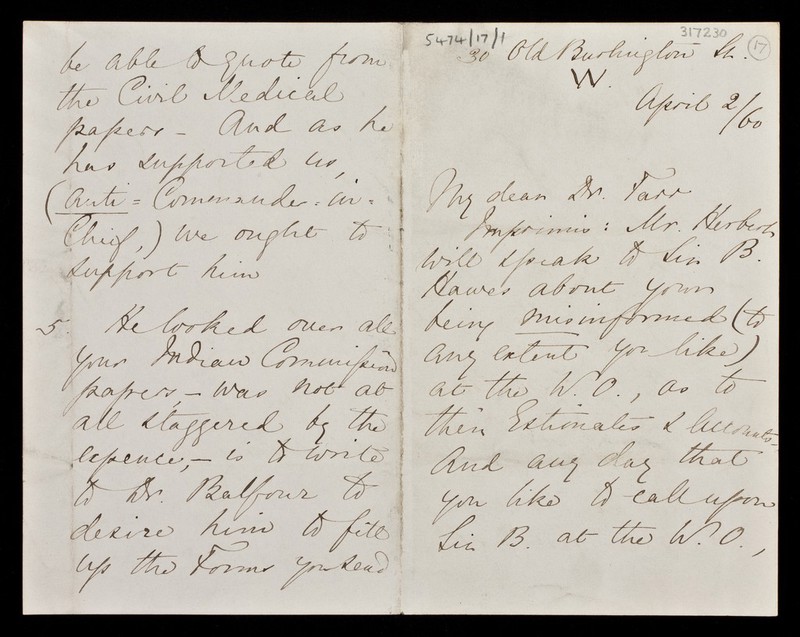 5474/17/1
317230
17
30 Old Burlington St.
W.
April 2/60
My dear Dr. Farr
Imprimis: Mr. Herbert
will speak to Sir B.
Hawes about your
being misinformed (to
any extent you like)
at the W.O., as to
their Estimates & Accounts -
And any day that
you like to call upon
Sir B. at the W.O.,
be able to quote from
the Civil Medical
papers - And as he
has supported us,
(anti=Commander=in=
Chief,) we ought to
support him
5. He looked over all
your Indian Commission
papers, - was not at
all staggered by the
expence, - is to write
to Dr. Balfour to
desire him to fill
up the Forms you send